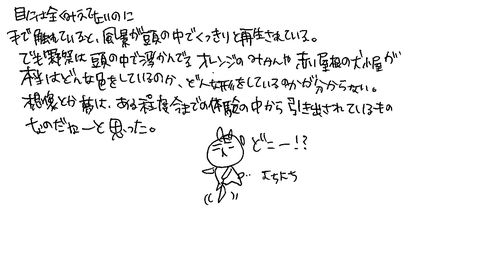 目には全く見えてないのに
手で触れていると、風景が頭の中でくっきりと再生されている。
でも野祭は頭の中で浮かんでるオレンジのみかんや赤い屋根の犬小屋が
本当はどんな色をしているのか、どんな形をしているのかが分からない。
想像とか夢は、ある程度今までの体験の中から引き出されているもの
なのだねーと思った。
どこー!?
よちよち